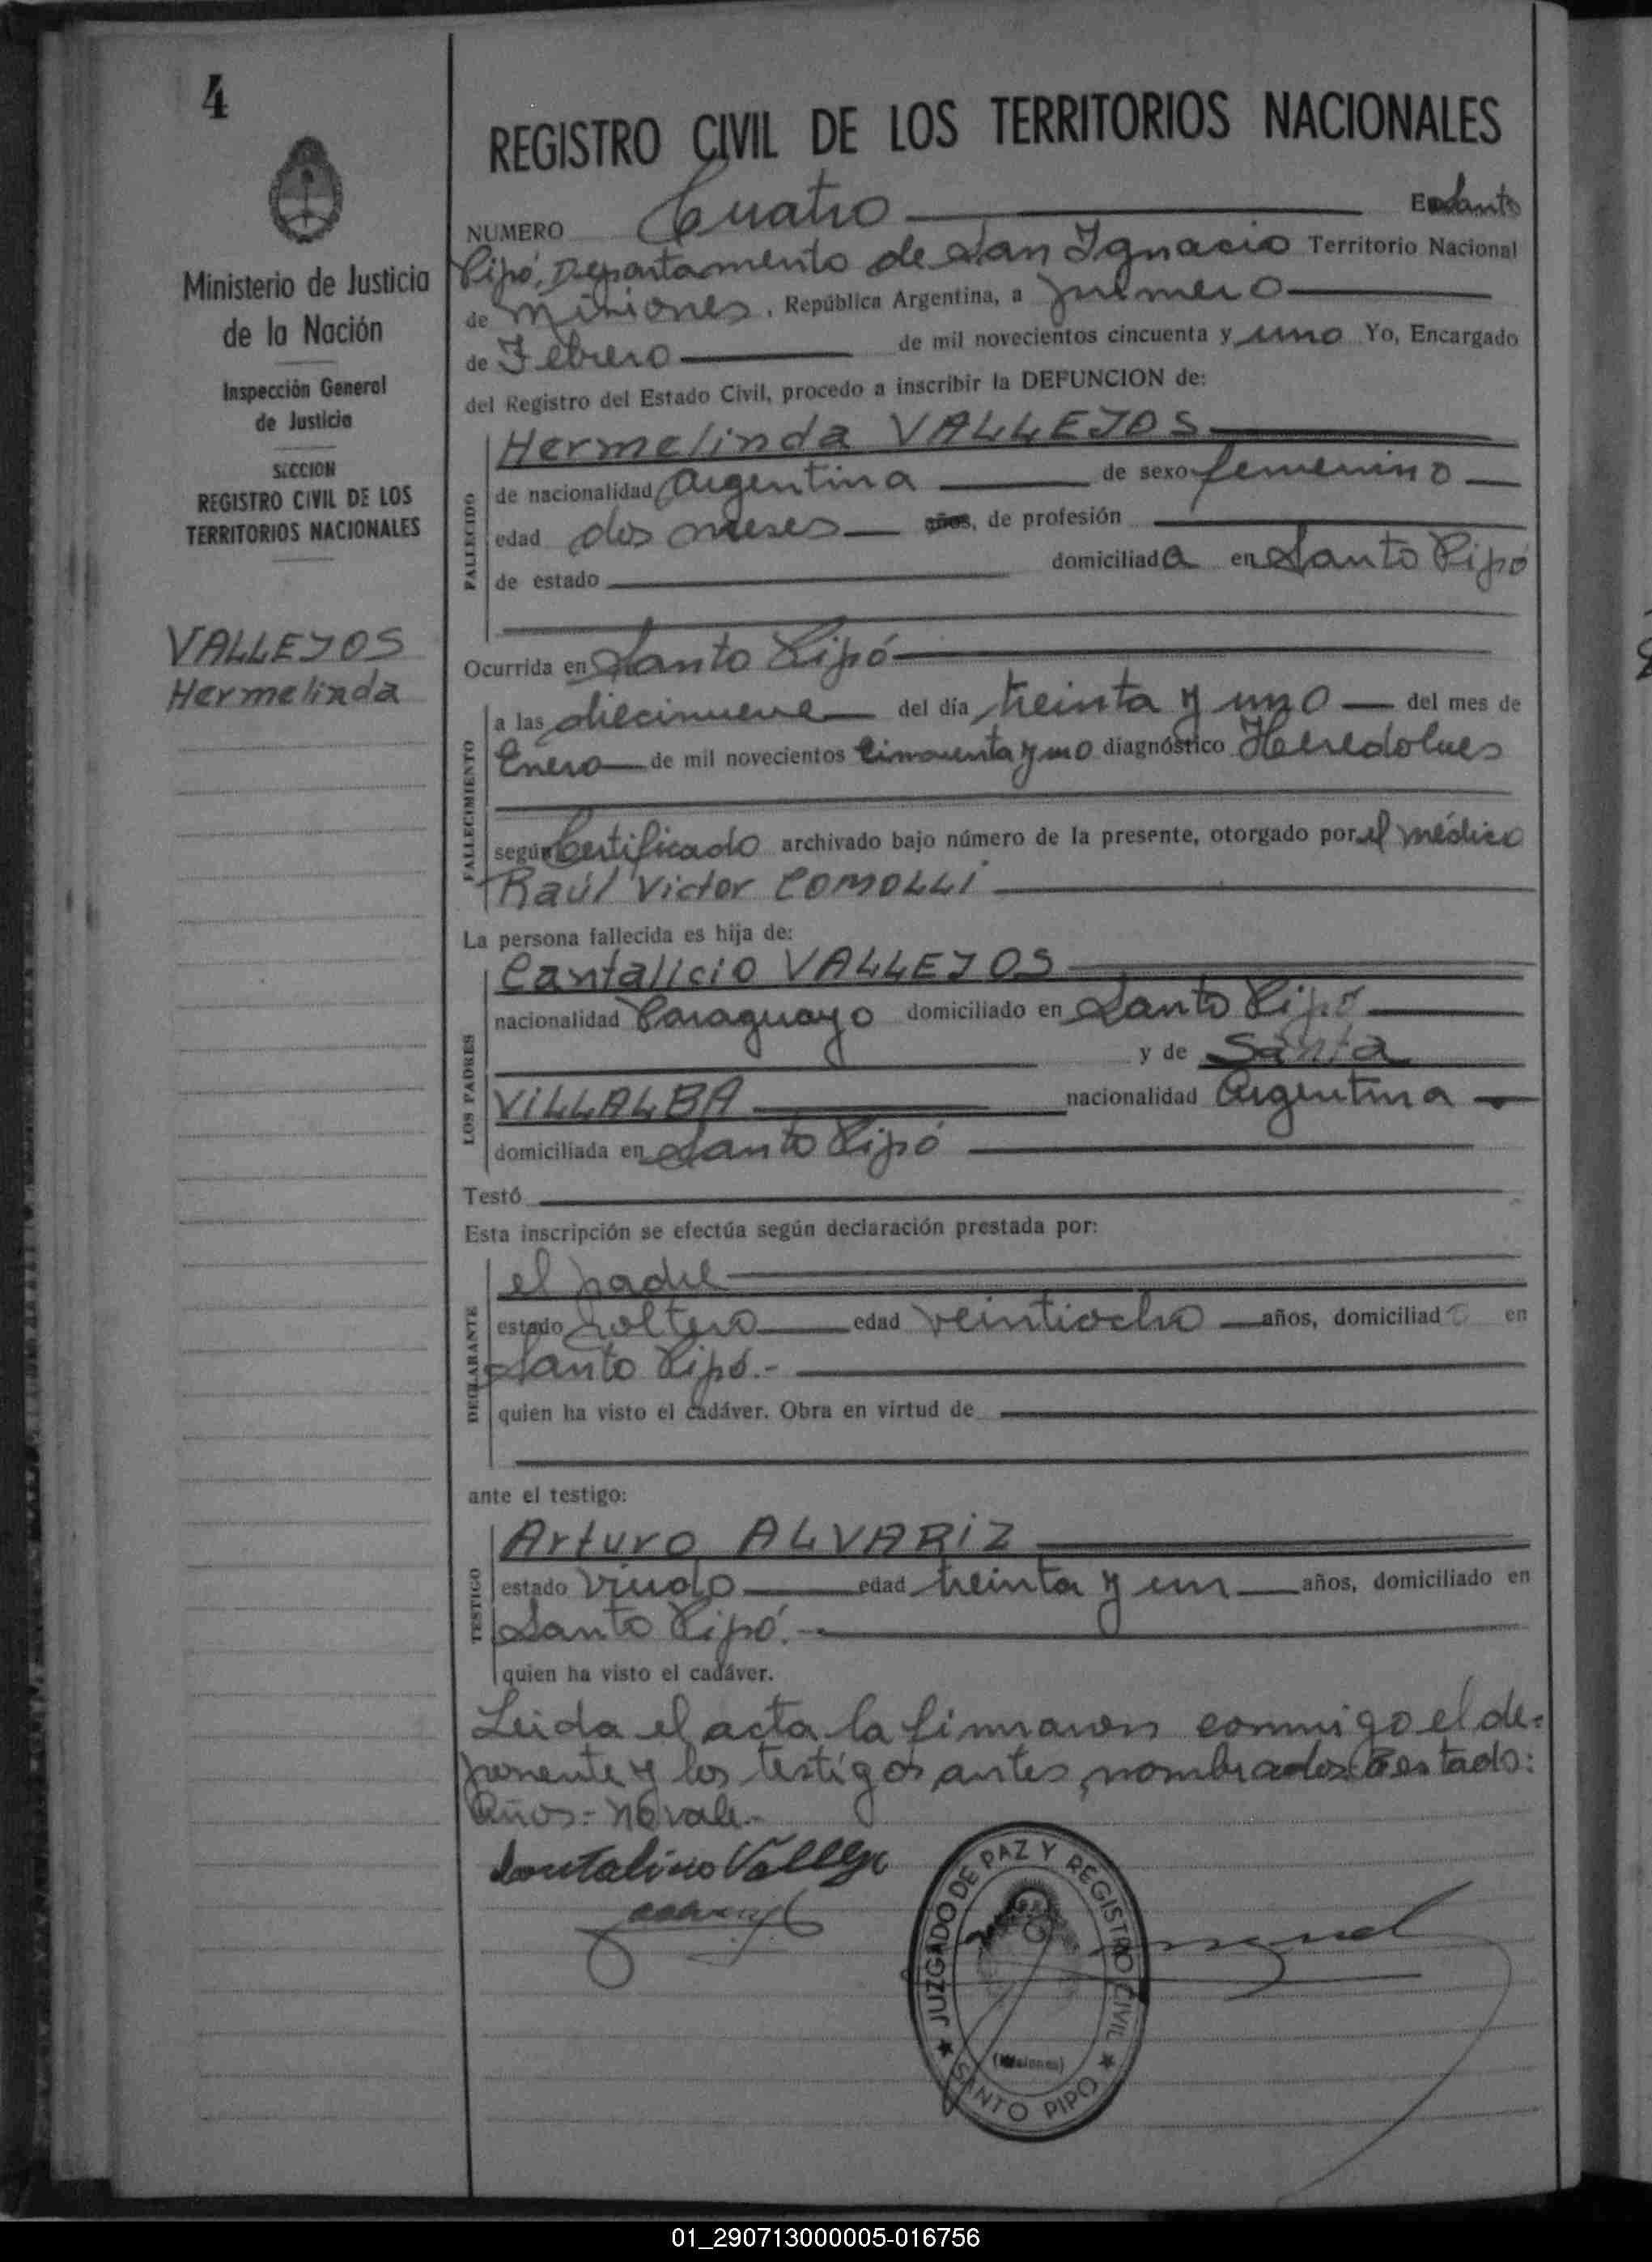 4
Ministerio de Justicia
de la Nación
Inspección General
de Justicia
SECCION
REGISTRO CIVIL DE LOS
TERRITORIOS NACIONALES
VALLEJOS
Hermelinda
REGISTRO CIVIL DE LOS TERRITORIOS NACIONALES
NUMERO Cuatro En Santo
Pipó, Departamento de San Ignacio Territorio Nacional
de Misiones, República Argentina, a primero
de Febrero de mil novecientos cincuenta y uno Yo, Encargado
del Registro del Estado Civil, procedo a inscribir la DEFUNCION de:
FALLECIDO
Hermelinda VALLEJOS
de nacionalidad Argentina de sexo femenino
edad dos meses años, de profesión
de estado domiciliada en Santo Pipó
Ocurrida en Santo Pipó
FALLECIMIENTO
a las diecinueve del día treinta y uno del mes de
Enero de mil novecientos cincuenta y uno diagnóstico Heredolues
según Certificado archivado bajo número de la presente, otorgado por el médico
Raúl Victor COMOLLI
La persona fallecida es hija de:
LOS PADRES
Cantalicio VALLEJOS
nacionalidad Paraguayo domiciliado en Santo Pipó
y de Santa
VILLALBA nacionalidad Argentina
domiciliada en Santo Pipó
Testó
Esta inscripción se efectúa según declaración prestada por:
DECLARANTE
el padre
estado soltero edad veintiocho años, domiciliado en
Santo Pipó.-
quien ha visto el cadáver. Obra en virtud de
ante el testigo:
TESTIGO
Arturo ALVARIZ
estado viudo edad treinta y un años, domiciliado en
Santo Pipó.-
quien ha visto el cadáver.
Leida el acta la firmaron conmigo el de-
ponente y los testigos antes nombrados Testado:
años= no vale.-
Cantalicio Vallejo
JUZGADO DE PAZ Y REGISTRO CIVIL
(Misiones)
SANTO PIPO
01_290713000005-016756